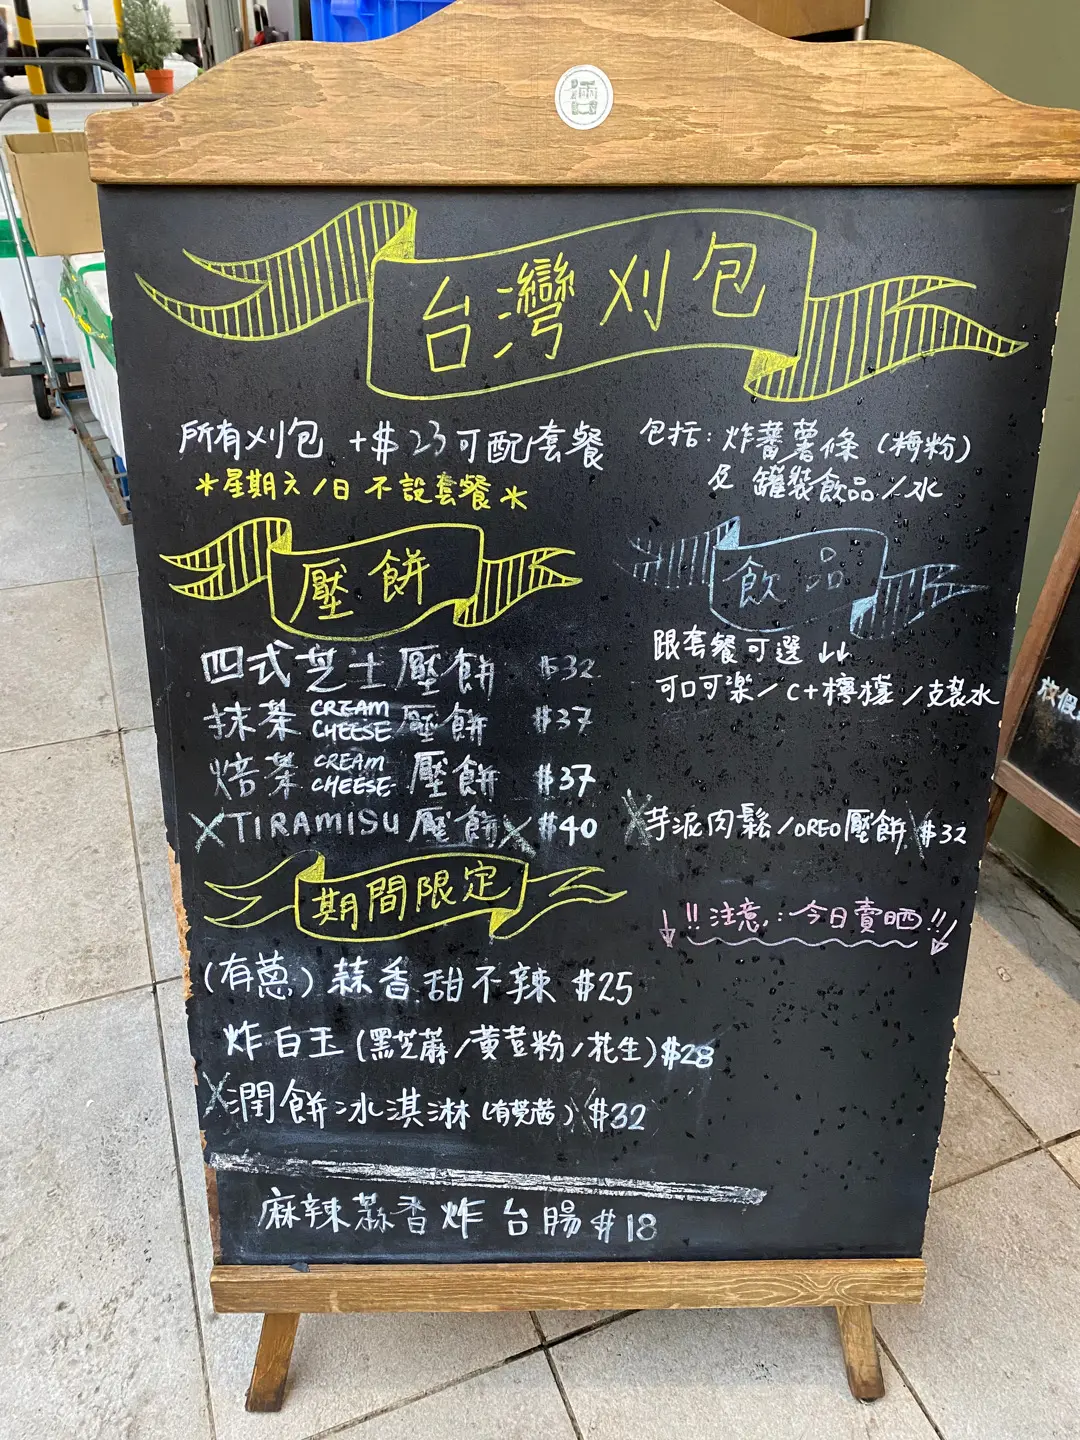 滿口
台灣刈包
所有刈包 +$23可配套餐
*星期六/日 不設套餐*
包括: 炸蕃薯條 (梅粉)
及 罐裝飲品/水
壓餅
四式芝士壓餅 $32
抹茶 CREAM CHEESE 壓餅 $37
焙茶 CREAM CHEESE 壓餅 $37
X TIRAMISU 壓餅 X $40
飲品
跟套餐可選 ↓↓
可口可楽/C+檸檬/支裝水
X 芋泥肉鬆/OREO壓餅 X $32
期間限定
↓!!注意: 今日賣晒!!↓
(有蔥) 蒜香甜不辣 $25
炸白玉 (黑芝蔴/黃荳粉/花生) $28
X 潤餅冰淇淋 (有芫茜) $32
麻辣蒜香炸台腸 $18